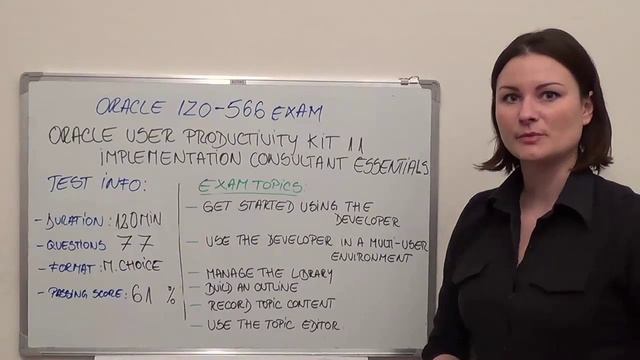 ORACLE 1Z0-566 EXAM
ORACLE USER PRODUCTIVITY KIT 11
IMPLEMENTATION CONSULTANT ESSENTIALS
TEST INFO:
- DURATION: 120 MIN
- QUESTIONS 77
- FORMAT: M. CHOICE
- PASSING SCORE: 61 %
EXAM TOPICS:
- GET STARTED USING THE
DEVELOPER
- USE THE DEVELOPER IN A MULTI-USER
ENVIRONMENT
- MANAGE THE LIBRARY
- BUILD AN OUTLINE
- RECORD TOPIC CONTENT
- USE THE TOPIC EDITOR